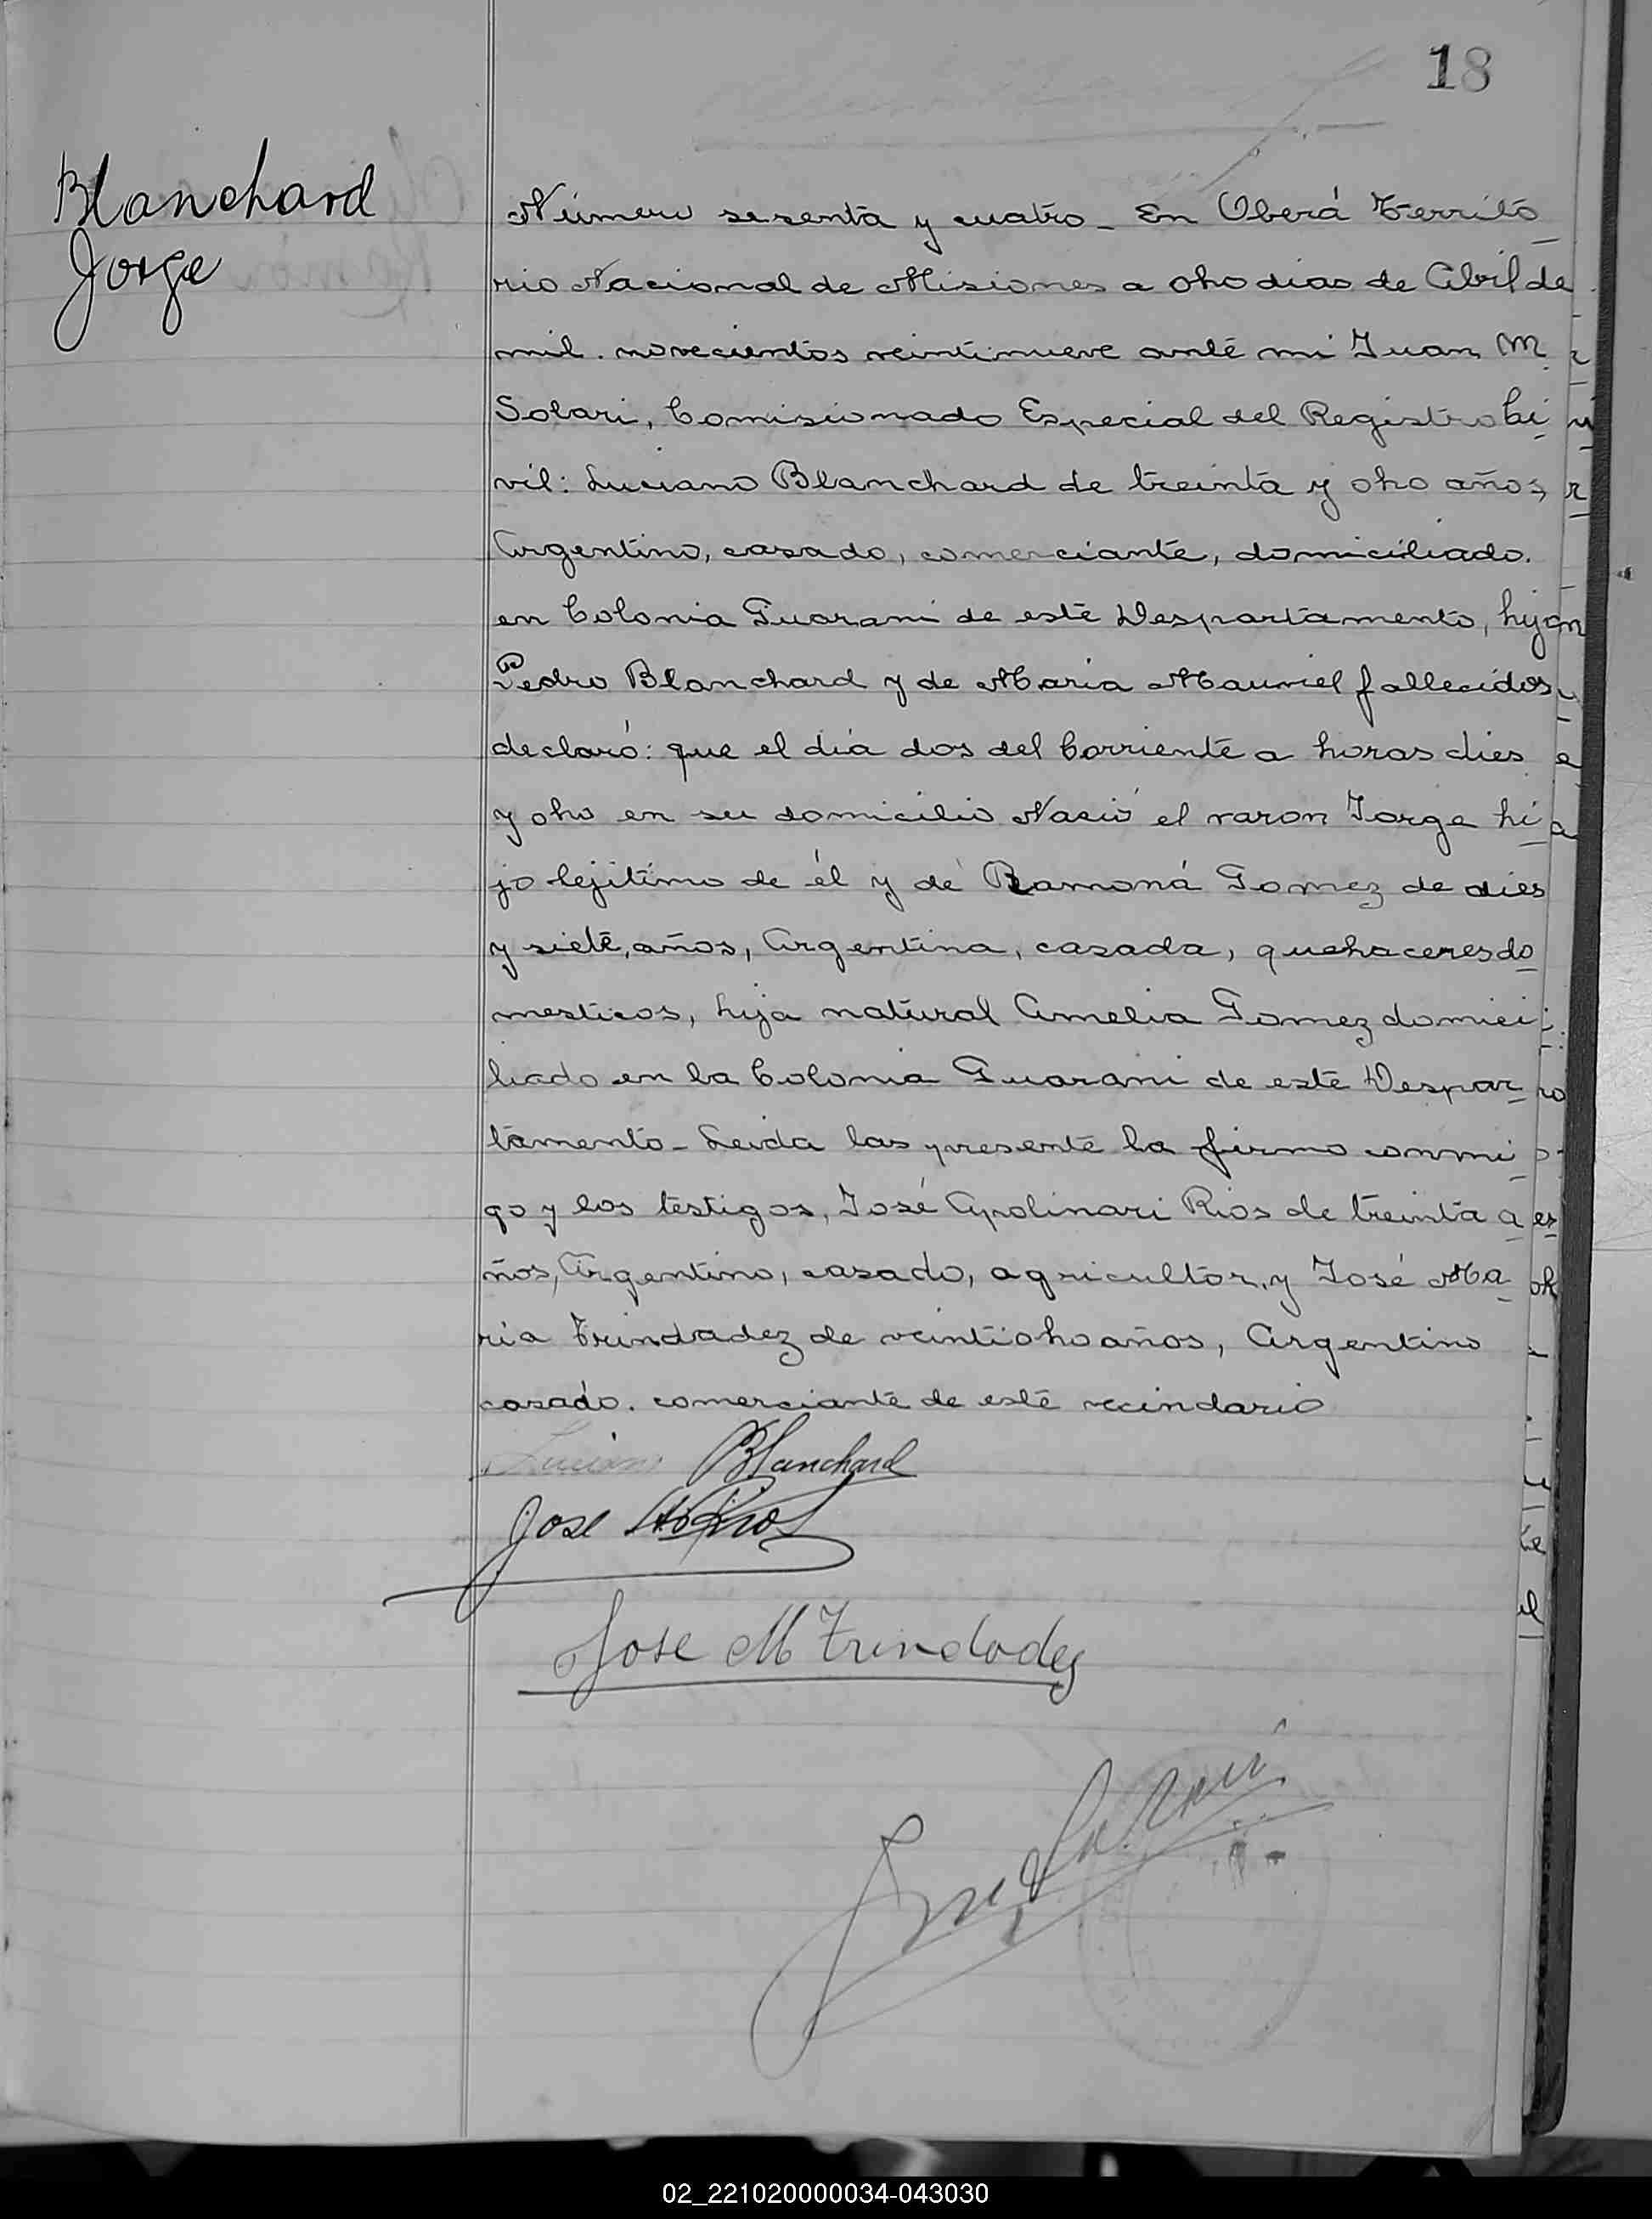 18
Blanchard
Jorge
Número sesenta y cuatro - En Oberá Territo
rio Nacional de Misiones a oho dias de Abril de
mil. novecientos veintinueve ante mi Juan M
Solari, Comisionado Especial del Registro Ci
vil: Luciano Blanchard de treinta y oho años,
Argentino, casado, comerciante, domiciliado.
en Colonia Guarani de este Despartamento, hijo
Pedro Blanchard y de Maria Mauriel fallecidos
declaró: que el dia dos del Corriente a horas dies
y oho en su domicilio Nació el varon Jorge hi
jo lejitimo de él y de Ramoná Gomez de dies
y siete, años, Argentina, casada, quehaceres do
mesticos, hija natural Amelia Gomez domici
liado en la Colonia Guarani de este Despar
tamento - Leida las presente la firmo conmi
go y los testigos, José Apolinari Rios de treinta a
ños, Argentino, casado, agricultor, y José Ma
ria Trindadez de veintioho años, Argentino
casado. comerciante de este vecindario
Luciano Blanchard
Jose Rios
Jose M Trindadez
02_221020000034-043030